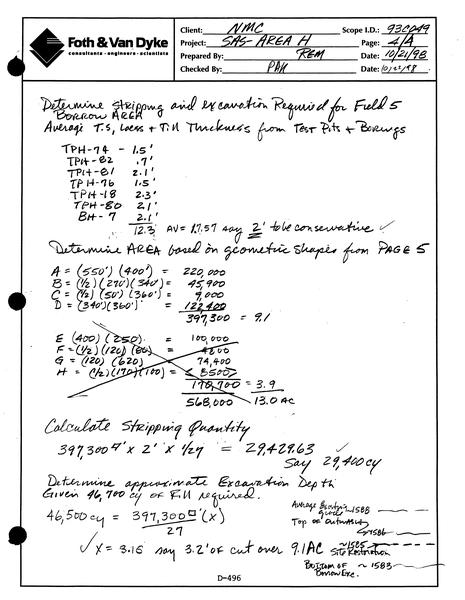 Foth & Van Dyke
consultants · engineers · scientists
Client: NMC Scope I.D.: 93C049
Project: SAS-AREA H Page: 4/A
Prepared By: REM Date: 10/21/98
Checked By: PAH Date: 10/22/98
Determine Stripping and excavation Required for Field 5
BORROW AREA
Average T.S, Loess + Till Thickness from Test Pits + Borings
TPH-74 - 1.5'
TPH-82 .7'
TPH-81 2.1'
TPH-76 1.5'
TPH-18 2.3'
TPH-80 2.1'
BH-7 2.1'
12.3 AV=1.757 say 2' to be conservative ✓
Determine AREA based on geometric shapes from PAGE 5
A = (550') (400') = 220,000
B = (1/2) (270') (340') = 45,900
C = (1/2) (50') (360') = 9,000
D = (340') (360') = 122,400
397,300 = 9.1
E (400) (250) = 100,000
F = (1/2) (120) (80) = 4800
G = (120) (620) = 74,400
H = (1/2) (170) (100) = <8500>
170,700 = 3.9
568,000 13.0 AC
Calculate Stripping Quantity
397,300 □' x 2' x 1/27 = 29,429.63 ✓
Say 29,400 cy
Determine approximate Excavation Depth
Given 46,700 cy of Fill required.
46,500 cy = 397,300 □' (x)
27
✓ X = 3.16 say 3.2' of cut over 9.1 AC
Average Existing
~1588
Top of Outwash
~1586
~1585
Site Restoration
Bottom of ~1583
Borrow Exc.
D-496